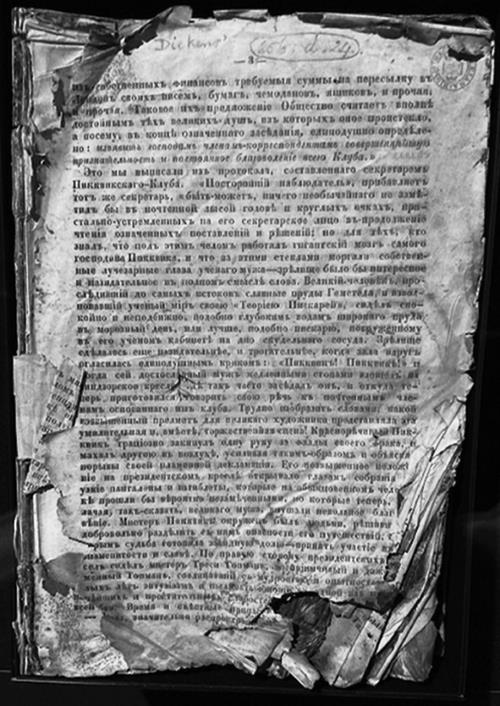 Dickens'
— 3 —
изъ собственныхъ финансовъ требуемыя суммы на пересылку въ
своихъ писемъ, бумагъ, чемодановъ, ящиковъ, и прочая,
и прочая. Таковое ихъ предложеніе Общество считаетъ вполнѣ
достойнымъ тѣхъ великихъ душъ, изъ которыхъ оное проистекло,
а посему, въ концѣ означеннаго засѣданія, единодушно опредѣле-
но: изъявить господамъ членамъ-корреспондентамъ совершеннѣйшую
признательность и постоянное благоволеніе всего Клуба.»
Это мы выписали изъ протокола, составленнаго секретаремъ
Пикквикскаго-Клуба. «Посторонній наблюдатель», прибавляетъ
тотъ же секретарь, «быть-можетъ, ничего необычайнаго не замѣ-
тилъ бы въ почтенной лысой головѣ и круглыхъ очкахъ, при-
стально-устремленныхъ на его секретарское лицо въ-продолженіе
чтенія означенныхъ поставленій и рѣшеній; но для тѣхъ, кто
зналъ, что подъ этимъ челомъ работалъ гигантскій мозгъ самого
господина Пикквика, и что за этими стеклами моргали собствен-
ные лучезарные глаза ученаго мужа—зрѣлище было бы интересное
и назидательное въ полномъ смыслѣ слова. Великій-человѣкъ, про-
слѣдившій до самыхъ истоковъ славные пруды Гемстеда, и взвол-
новавшій ученый міръ своею «Теоріею Пискарей», сидѣлъ спо-
койно и неподвижно, подобно глубокимъ водамъ широкаго пруда
въ морозный день, или лучше, подобно пискарю, погруженному
въ его ученомъ кабинетѣ на дно скудельнаго сосуда. Зрѣлище
сдѣлалось еще назидательнѣе, и трогательнѣе, когда зала вдругъ
огласилась единодушнымъ крикомъ: «Пикквикъ! Пикквикъ!» и
когда сей достославный мужъ медленными стопами взошелъ на
виндзорское кресло, гдѣ такъ часто засѣдалъ онъ, и откуда те-
перь приготовился говорить свою рѣчь къ почтеннымъ чле-
намъ основаннаго имъ клуба. Трудно изобразить словами, какой
возвышенный предметъ для великаго художника представляла эта
умилительная и, вмѣстѣ, торжественная сцена! Краснорѣчивый Пик-
квикъ граціозно закинулъ одну руку за фалды своего фрака, и
махалъ другою въ воздухѣ, усиливая такимъ-образомъ и объясняя
порывы своей пламенной декламаціи. Его возвышенное положе-
ніе на президентскомъ креслѣ открывало глазамъ собранія
узкіе панталоны и штиблеты, которые на обыкновенномъ чело-
кѣ прошли бы вѣроятно незамѣченными, но которые теперь,
лачая, такъ-сказать, великаго мужа, внушали невольное благ
вѣніе. Мистеръ Пикквикъ окруженъ былъ людьми, рѣшив
добровольно раздѣлить съ нимъ опасности его путешествій,
рымъ судьба готовила завидную долю—принять участіе въ
знаменитости и славѣ. По правую сторону президентскаго
селъ сидѣлъ мистеръ Треси Топманъ,
менный Топманъ, соединявшій съ мудростью и опытностью
лыхъ лѣтъ энтузіазмъ и пылкость
Время и
значительно